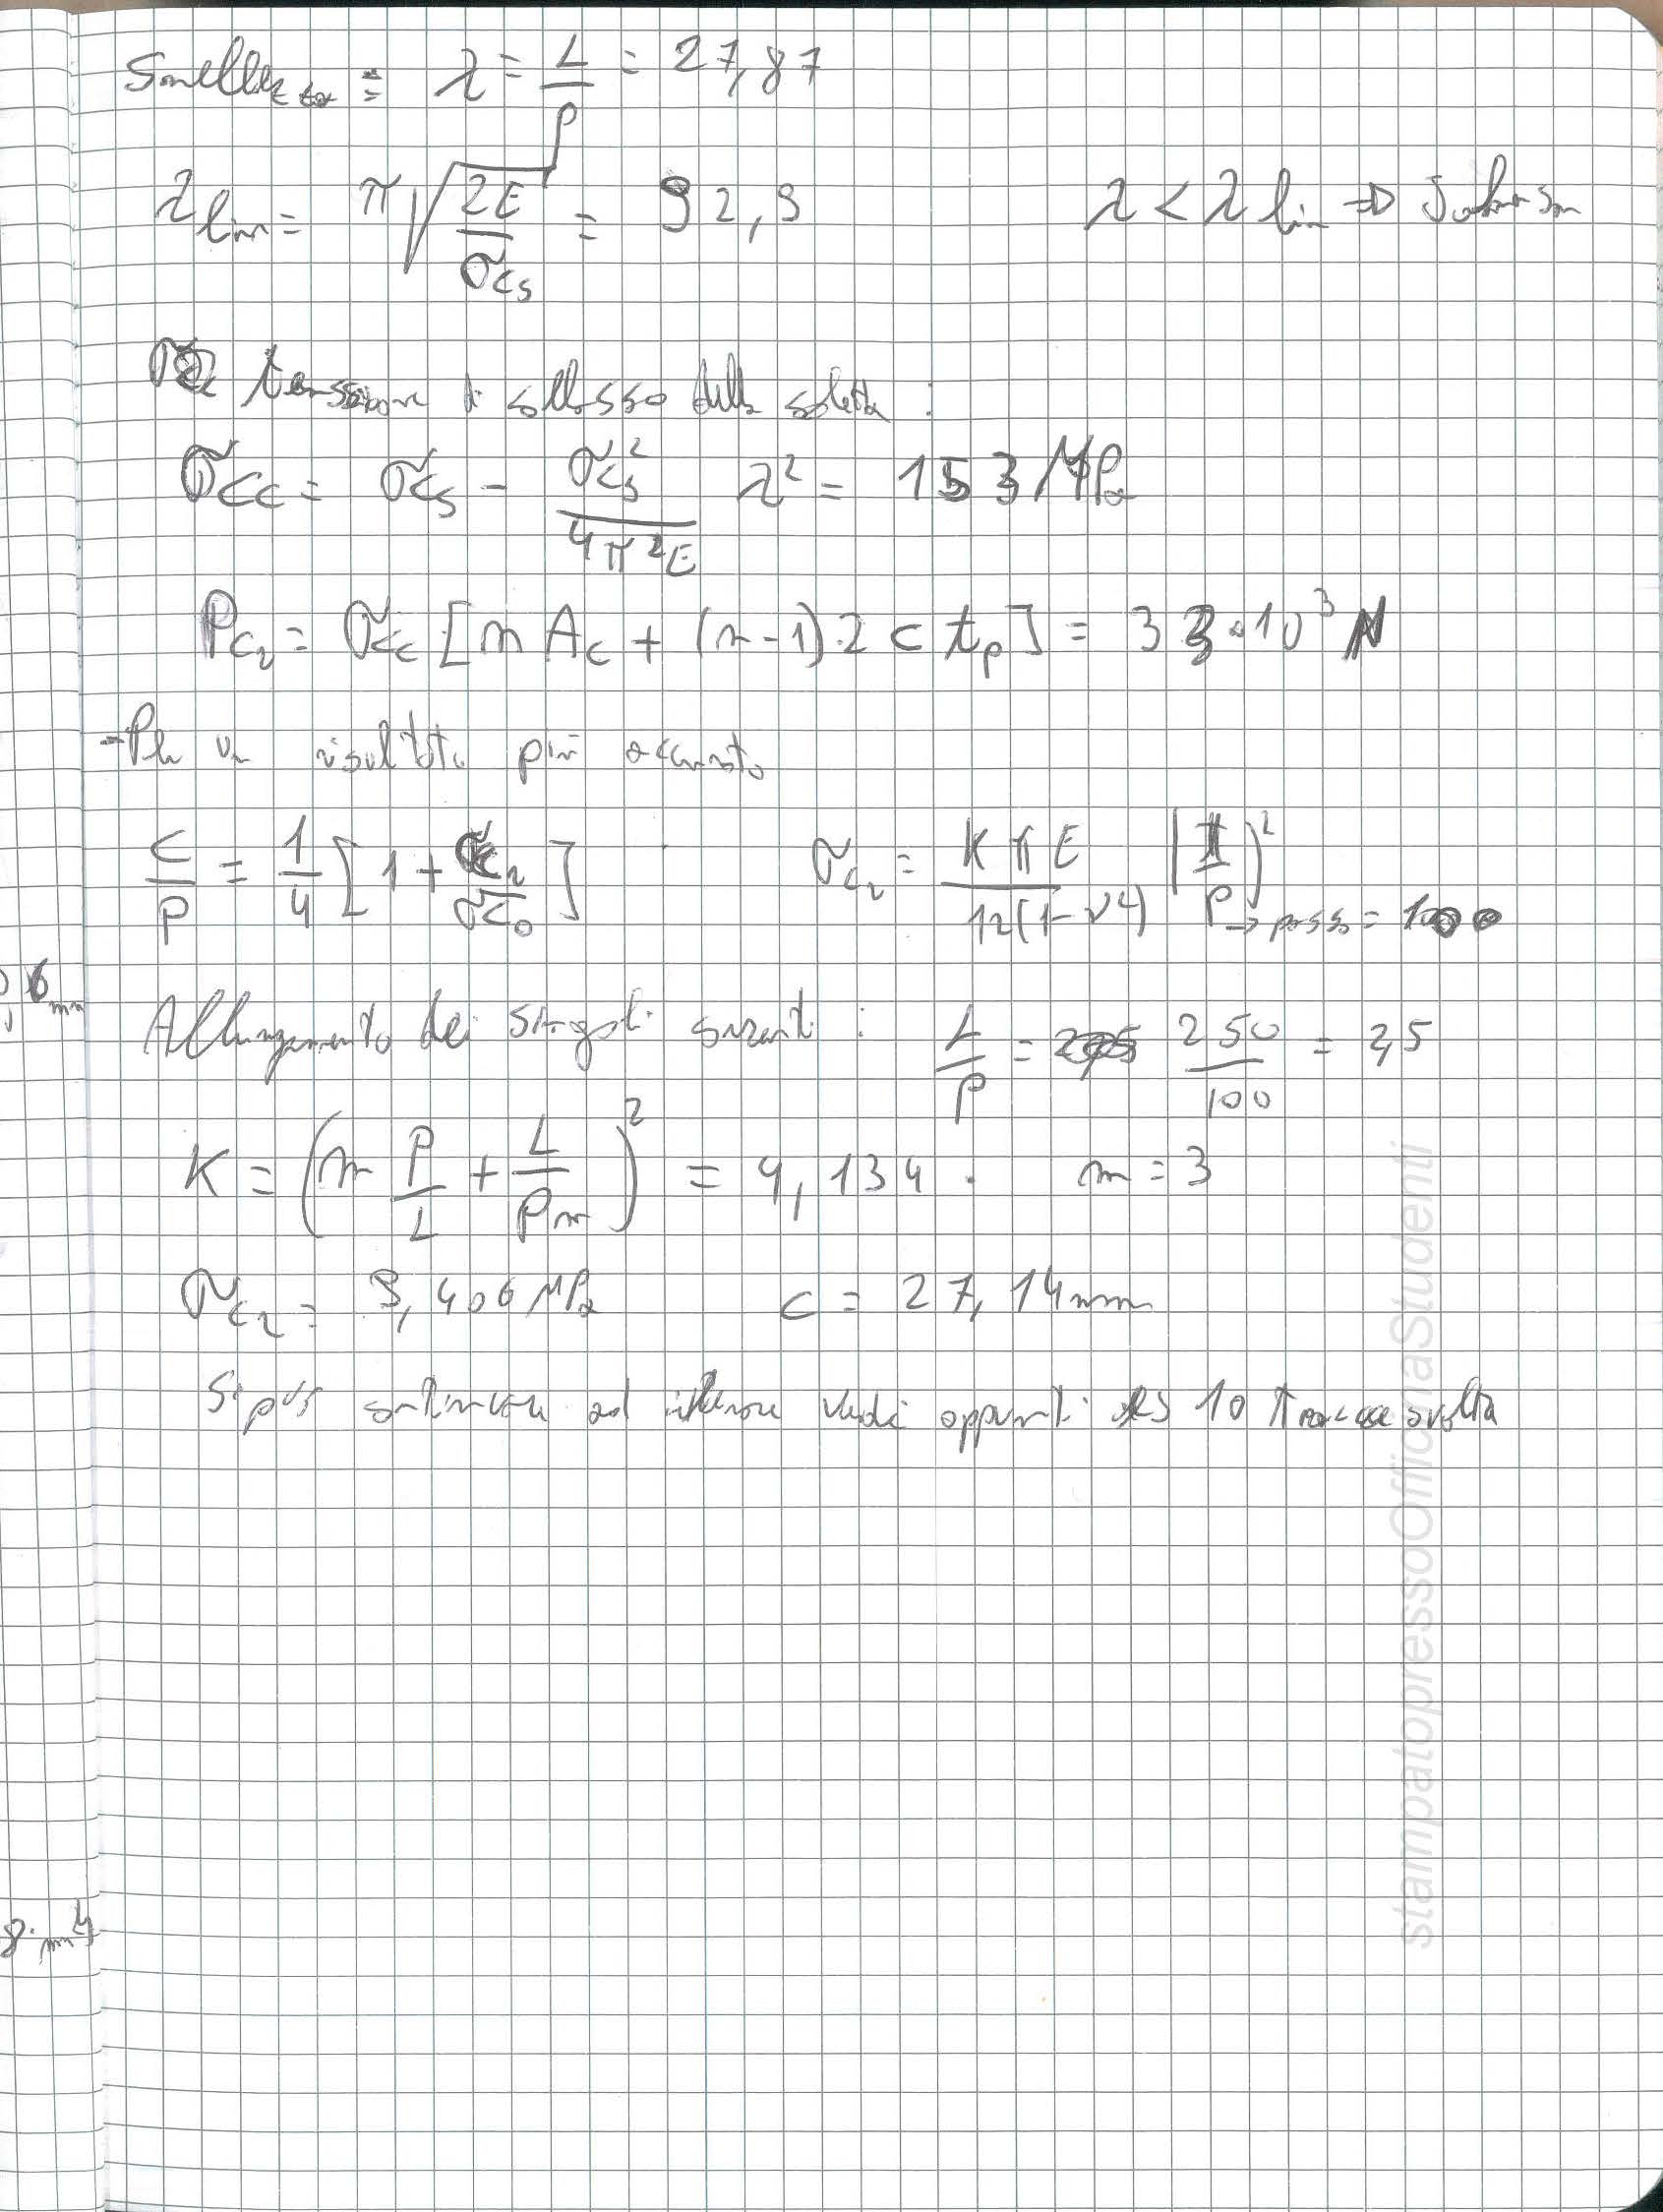 Snellezza = λ = L/ρ = 27,87
λ lim = π √(2E/σcs) = 92,9   λ < λ lim => Johnson
tensione di collasso della soletta :
σcc = σcs - σcs²/(4π²E) λ² = 153 MPa
Pc2 = σcc [n Ac + (n-1)·2 c tp] = 33·10³ N
- Per un risultato più accurato
c/p = 1/4 [1 + σc2/σc0]   σc2 = K π E/(12(1-ν²)) (t/p)² → passo = 100
6 mm
Allungamento dei singoli : L/p = 250/100 = 2,5
K = (m p/L + L/(p m))² = 4,134   m = 3
σc2 = 9,406 MPa   c = 27,14 mm
Si può continuare ad iterare vedi appunti es 10 Traccia svolta
8· mm⁴
stampatopressoOfficinaStudenti